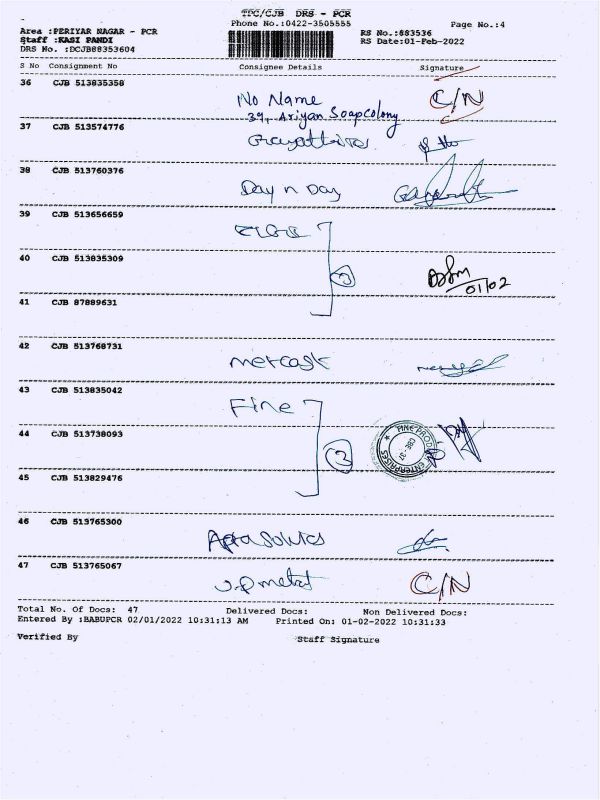 TPC/CJB DRS - PCR
Phone No.:0422-3505555
Page No.:4
Area :PERIYAR NAGAR - PCR
Staff :KASI PANDI
DRS No. :DCJB88353604
RS No.:883536
RS Date:01-Feb-2022
S No Consignment No Consignee Details Signature
36 CJB 513835358 No Name C/N
39, Ariyan Soapcolony
37 CJB 513574776
38 CJB 513760376 Day n Day
39 CJB 513656659
40 CJB 513835309 01/02
41 CJB 87889631
42 CJB 513768731 metcask
43 CJB 513835042 Fine
44 CJB 513738093 FINE PRODU ENTERPRISES CBE - 37
45 CJB 513829476
46 CJB 513765300
47 CJB 513765067 C/N
Total No. Of Docs: 47 Delivered Docs: Non Delivered Docs:
Entered By :BABUPCR 02/01/2022 10:31:13 AM Printed On: 01-02-2022 10:31:33
Verified By Staff Signature